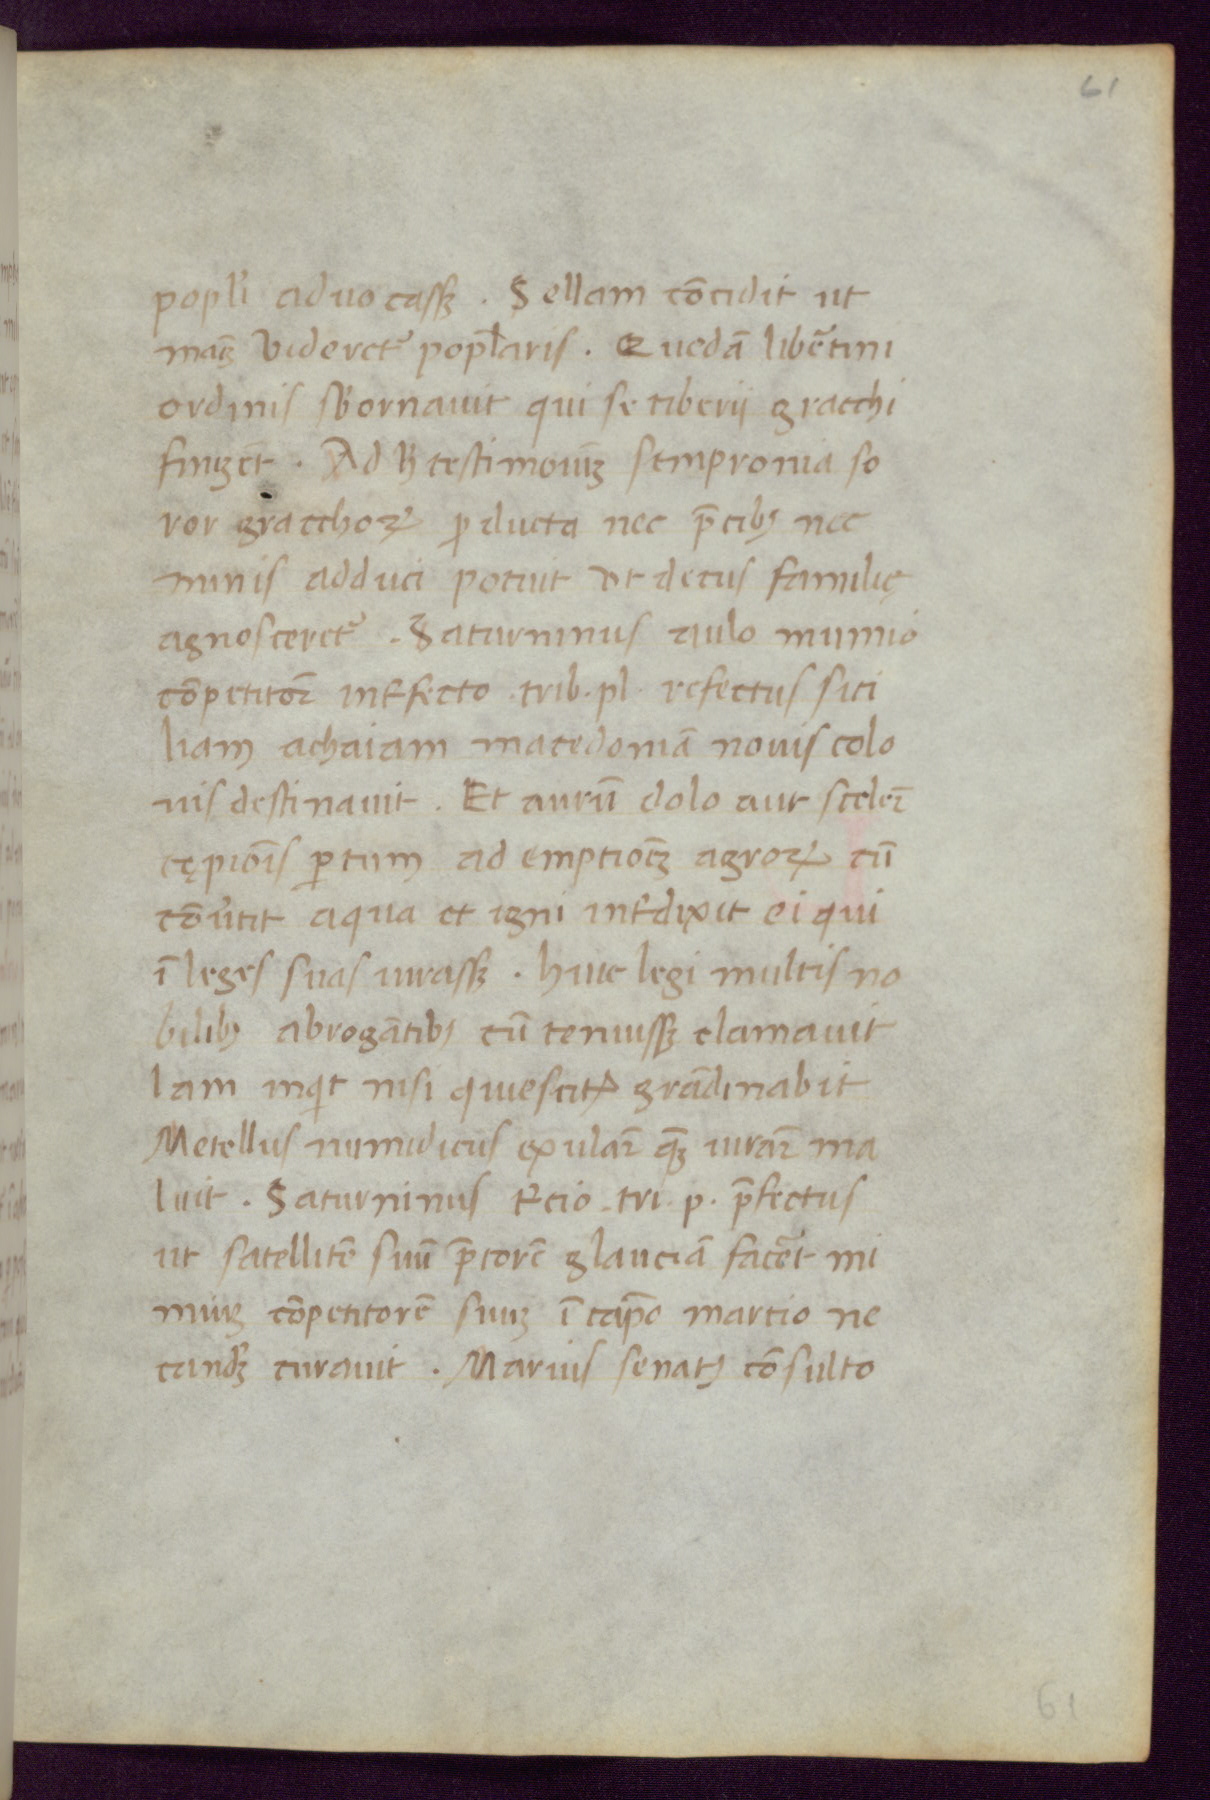 61
popl̃i aduocassꝫ . Sellam cōcidit ut
magꝫ videret᷑ pop̄laris . Quedā libe᷑tini
ordinis sb̉ornauit qui se tiberij gracchi
finge᷑t . Ad ħ testimoniūꝫ sempronia so
ror gracchoꝝ ꝓducta nec p̄cibꝫ nec
minis adduci potuit ut decus familię
agnosceret᷑ . Saturninus aulo mumio
cōpetitor̄ int̄fecto . trib . pl . refectus sici
liam achaiam macedoniā nouis colo
nis destinauit . Et aurū dolo aut sceler̄
cępiōis ꝑtum ad emptiōeꝫ agroꝝ cū
cōu̓tit aqua et igni int̄dixit ei qui
ī leges suas iurassꝫ . huic legi multis no
bilibꝫ abrogātibꝫ cū tenuissꝫ clamauit
Iam inqͥt nisi quiescitꝭ grādinabit
Metellus numidicus exular̄ qꝫ iurar̄ ma
luit . Saturninus t̄cio . tri . p . p̄fectus
ut satellitē suū p̄torē glauciā face᷑t mi
miuꝫ cōpetitorē suuꝫ ī cāpo martio ne
candꝫ curauit . Marius senatꝫ cōsulto
61